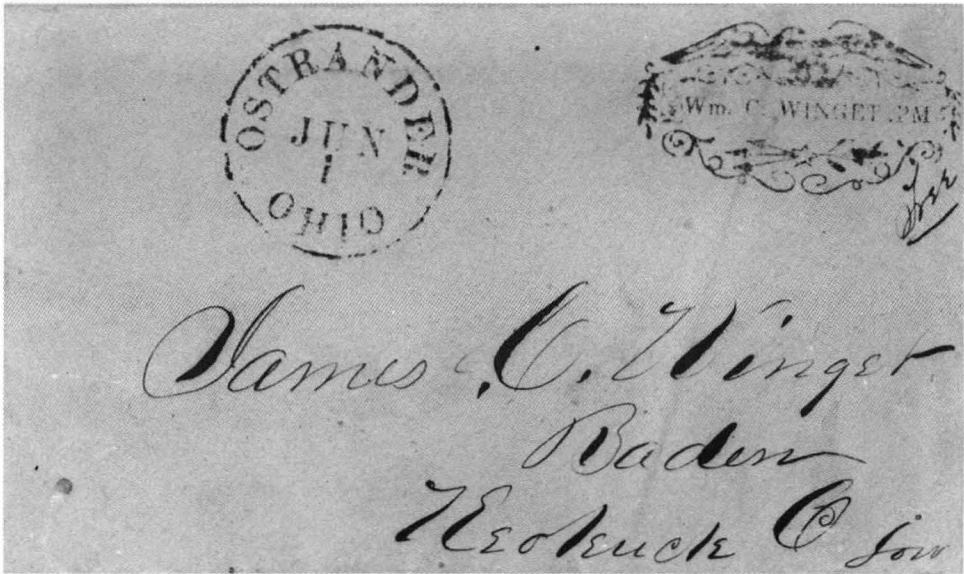 OSTRANDER
JUN
1
OHIO
Wm. C. WINGET. PM
Free
James C. Winget
Baden
Keokuck Co Iow